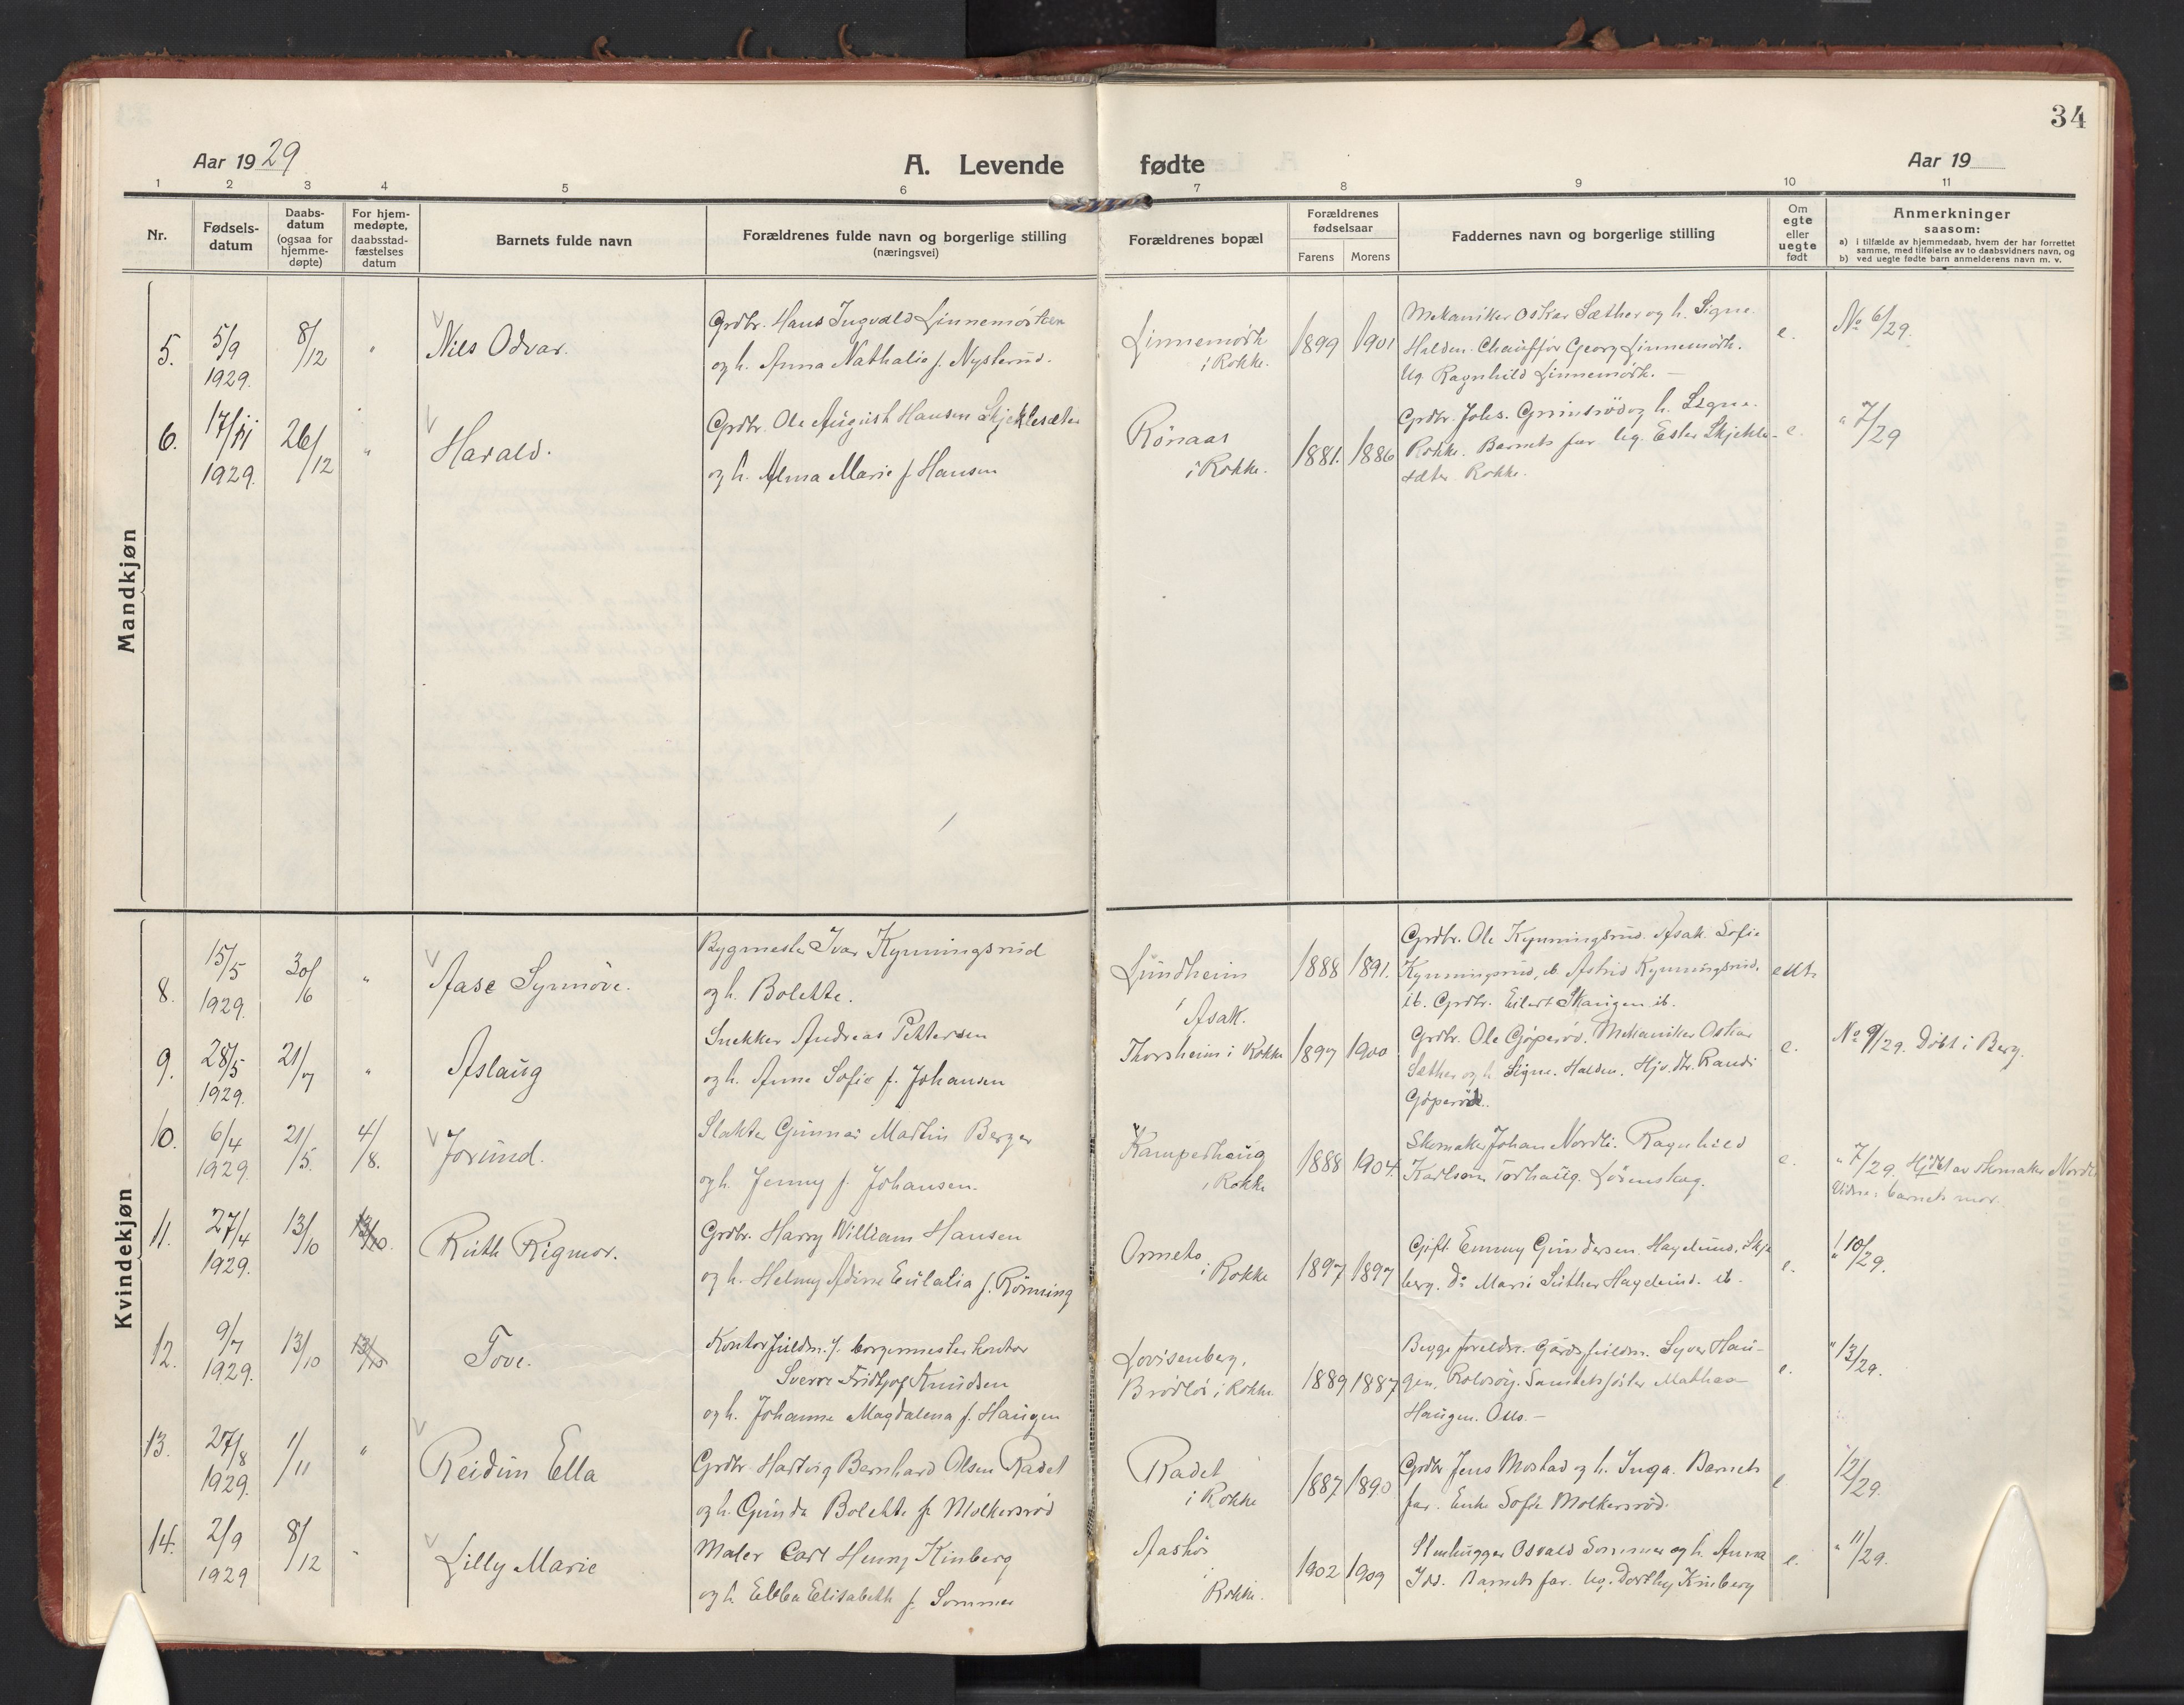 34
Aar 1929
A. Levende fødte
Aar 19
1 2 3 4 5 6 7 8 9 10 11
Nr.
Fødsels-
datum
Daabs-
datum
(ogsaa for
hjemme-
døpte)
For hjem-
medøpte,
daabsstad-
fæstelses
datum
Barnets fulde navn
Forældrenes fulde navn og borgerlige stilling
(næringsvei)
Forældrenes bopæl
Forældrenes
fødselsaar
Farens Morens
Faddernes navn og borgerlige stilling
Om
egte
eller
uegte
født
Anmerkninger
saasom:
a) i tilfælde av hjemmedaab, hvem der har forrettet
samme, med tilføielse av to daabsvidners navn, og
b) ved uegte fødte barn anmelderens navn m. v.
Mandkjøn
5.
5/9
1929.
8/12
"
Nils Odvar.
Grdbr. Hans Ingvald Linnemörken
og h. Anna Nathalie f. Nysterud.
Linnemörk
i Rokke.
1899 1901
Mekaniker Oskar Sæther og h. Signe.
Halden. Chauffør Georg Linnemörk.
Ug. Ragnhild Linnemörk. —
e.
No 6/29.
6.
17/11
1929.
26/12
"
Harald.
Grdbr. Ole August Hansen Skjeklesæter
og h. Alma Marie f. Hansen
Rönaas
i Rokke.
1881. 1886
Grdbr. Johs. Grimsröd og h. Signe.
Rokke. Barnets far. Ug. Ester Skjekle-
sæter Rokke.
e.
" 7/29
Kvindekjøn
8.
15/5
1929.
30/6
"
Aase Synnöve.
Bygmester Ivar Kynningsrud
og h. Bolette.
Lundheim
i Asak.
1888 1891.
Grdbr. Ole Kynningsrud. Asak. Sofie
Kynningsrud, ib. Astrid Kynningsrud,
ib. Grdbr. Eilert Skaugen ib.
ekte
9.
28/5
1929.
21/7
"
Aslaug
Snekker Andreas Pettersen
og h. Anne Sofie f. Johansen
Thorsheim i Rokke
1897 1900
Grdbr. Ole Göperöd. Mekaniker Oskar
Sæther og h. Signe. Halden. Hjv. Fr. Randi
Göperöd.
e.
No 9/29. Döbt i Berg.
10.
6/4
1929.
21/5.
4/8.
Jorund.
Slakter Gunnar Martin Berger
og h. Jenny f. Johansen.
Kamperhaug
i Rokke
1888 1904.
Skomaker Johan Nordli. Ragnhild
Karlsen Torhaug. Lörenskog.
e.
" 7/29. Hjdbt av skomaker Nordli
Vidne: barnets mor.
11.
27/4
1929.
13/10
13/10.
Ruth Rigmor.
Grdbr. Harry William Hansen
og h. Helmy Adine Eulalia f. Rönning
Ormeto
i Rokke
1897 1897
Gift Emmy Gundersen Hagelund, Skje
berg. Do Marie Hagelund. ib.
e.
" 10/29.
12.
9/7
1929.
13/10
13/10
Tove.
Kontorfuldm. f. borgermester kontor
Sverre Fridtjof Knudsen
og h. Johanne Magdalena f. Haugen
Lovisenberg,
Brödlös i Rokke
1889 1887
Begge foreldre. Gårdsfuldm. Syver Hau-
gen, Rolvsöy. Mathea
Haugen. Oslo. —
e.
" 13/29.
13.
27/8
1929.
1/11
"
Reidun Ella
Grdbr. Hartvig Bernhard Olsen Radet
og h. Gunda Bolette f. Molkersröd
Radet
i Rokke
1887 1890
Grdbr Jens Mostad og h. Inga. Barnets
far. Enke Sofie Molkersröd.
e
12/29.
14.
2/9
1929
8/12
Lilly Marie
Maler Carl Henry Kinberg
og h. Ebba Elisabeth f. Sommer
i
Rokke.
1902 1909
Stenhugger Osvald Sommer og h. Anna
Idd. Barnets far. Ug. Dorthy Kinberg
e.
" 11/29.